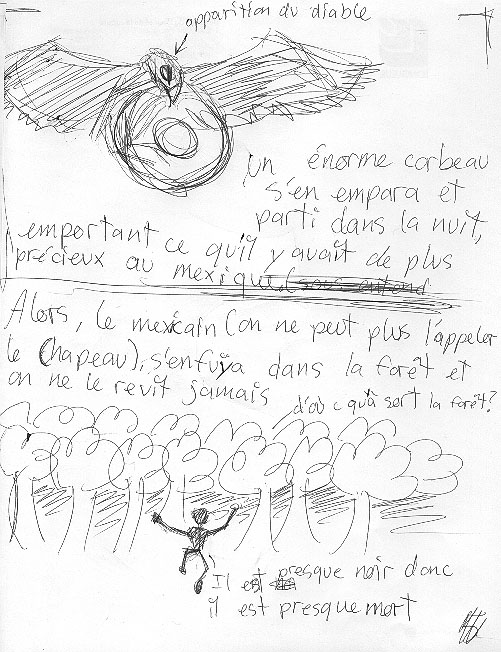 apparition du diable
Un énorme corbeau
s'en empara et
parti dans la nuit,
emportant ce qu'il y avait de plus
précieux au mexique. (sous entend
Alors, le mexicain (on ne peut plus l'appeler
le Chapeau), s'enfuya dans la forêt et
on ne le revit jamais
d'où c qu'a sort la forêt?
Il est presque noir donc
il est presque mort